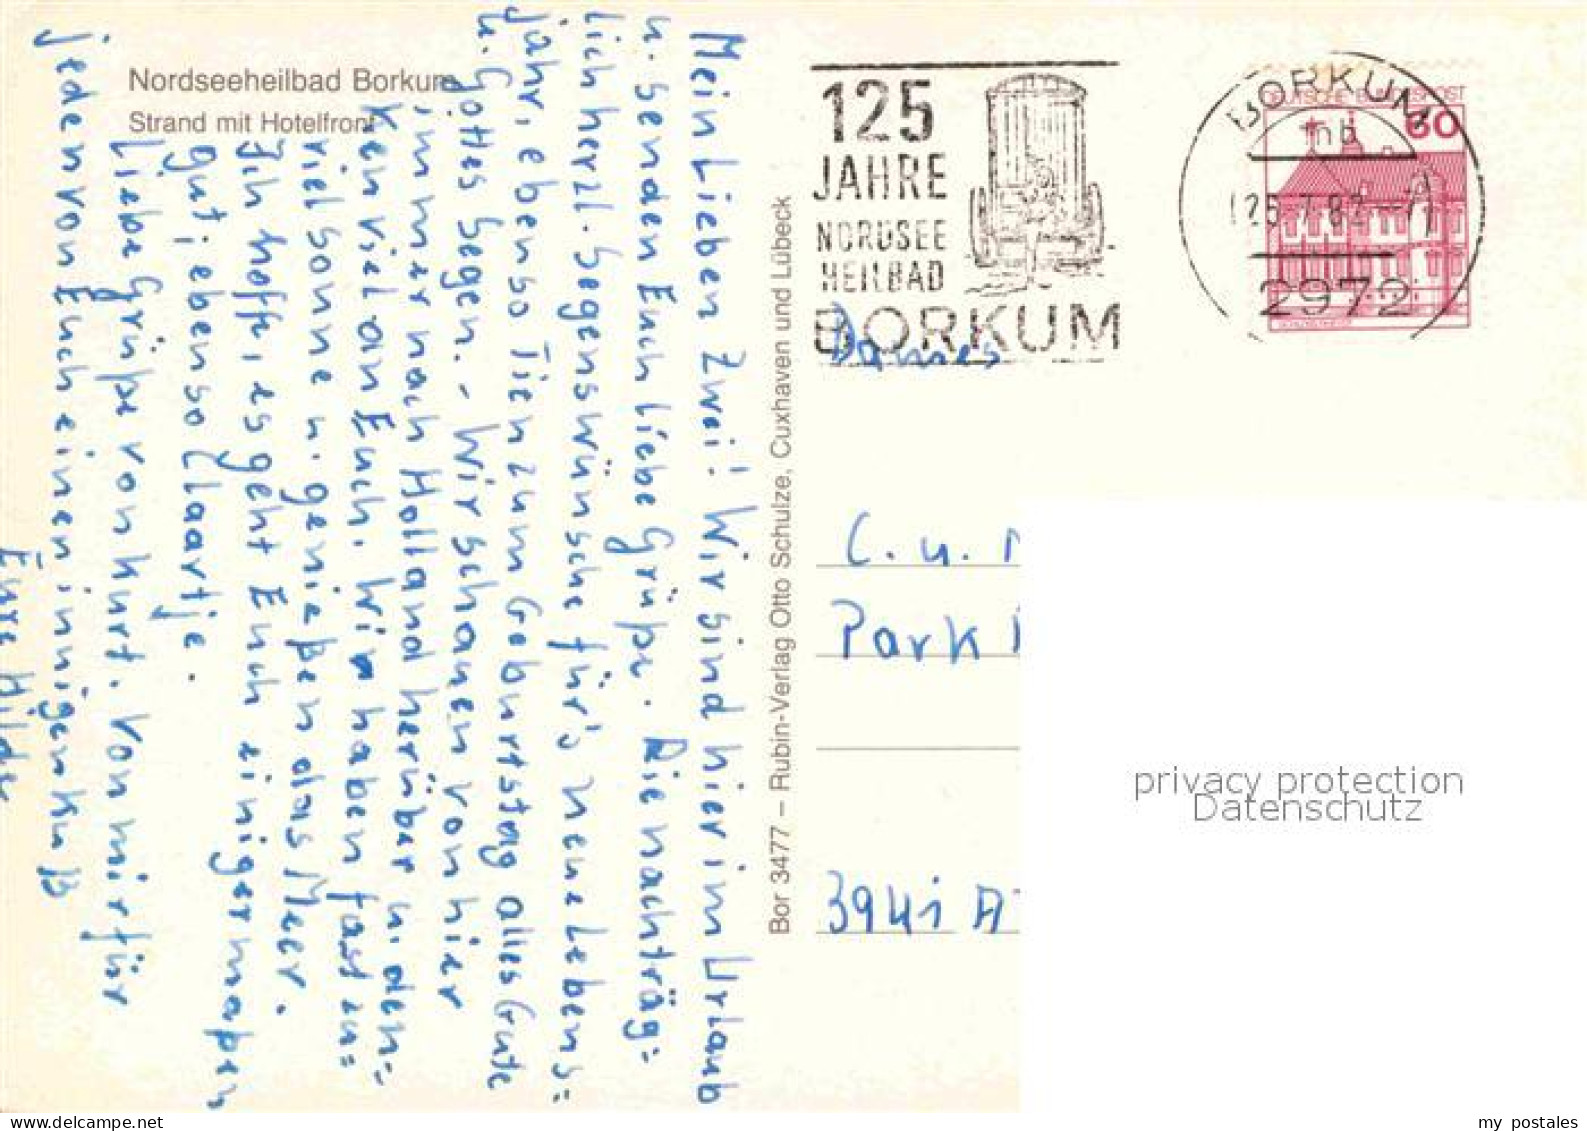 Nordseeheilbad Borkum
Strand mit Hotelfront
Mein Lieben Zwei! Wir sind hier im Urlaub
u. senden Euch liebe Grüße. Die nachträg=
lich herzl. Segenswünsche für's neue Lebens=
jahr, ebenso Tien zum Geburtstag alles Gute
u. Gottes Segen. - Wir schauen von hier
immer nach Holland herüber u. den=
ken viel an Euch. Wir haben fast zu=
viel Sonne u. genießen das Meer.
Ich hoffe, es geht Euch einigermaßen
gut, ebenso Claartje.
Liebe Grüße von Kurt. Von mir für
jeden von Euch einen innigen Kuß
Eure Hilde
Bor 3477 – Rubin-Verlag Otto Schulze, Cuxhaven und Lübeck
125
JAHRE
NORDSEE
HEILBAD
BORKUM
BORKUM
mb
25.7.82
2972
DEUTSCHE BUNDESPOST
60
C. u.
Park
3941 A
privacy protection
Datenschutz
my postales